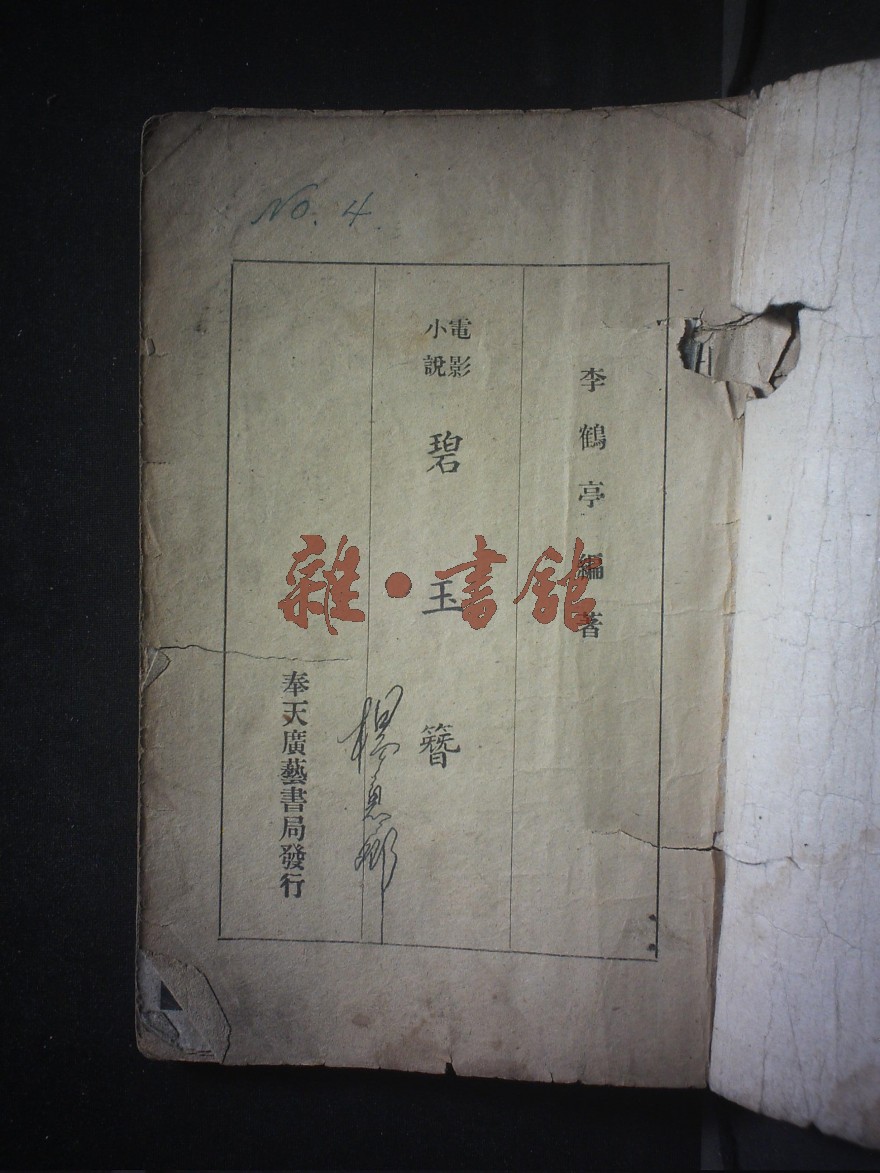 No. 4
李鶴亭編著
電影
小說
碧玉簪
楊惠卿
奉天廣藝書局發行
雜·書館